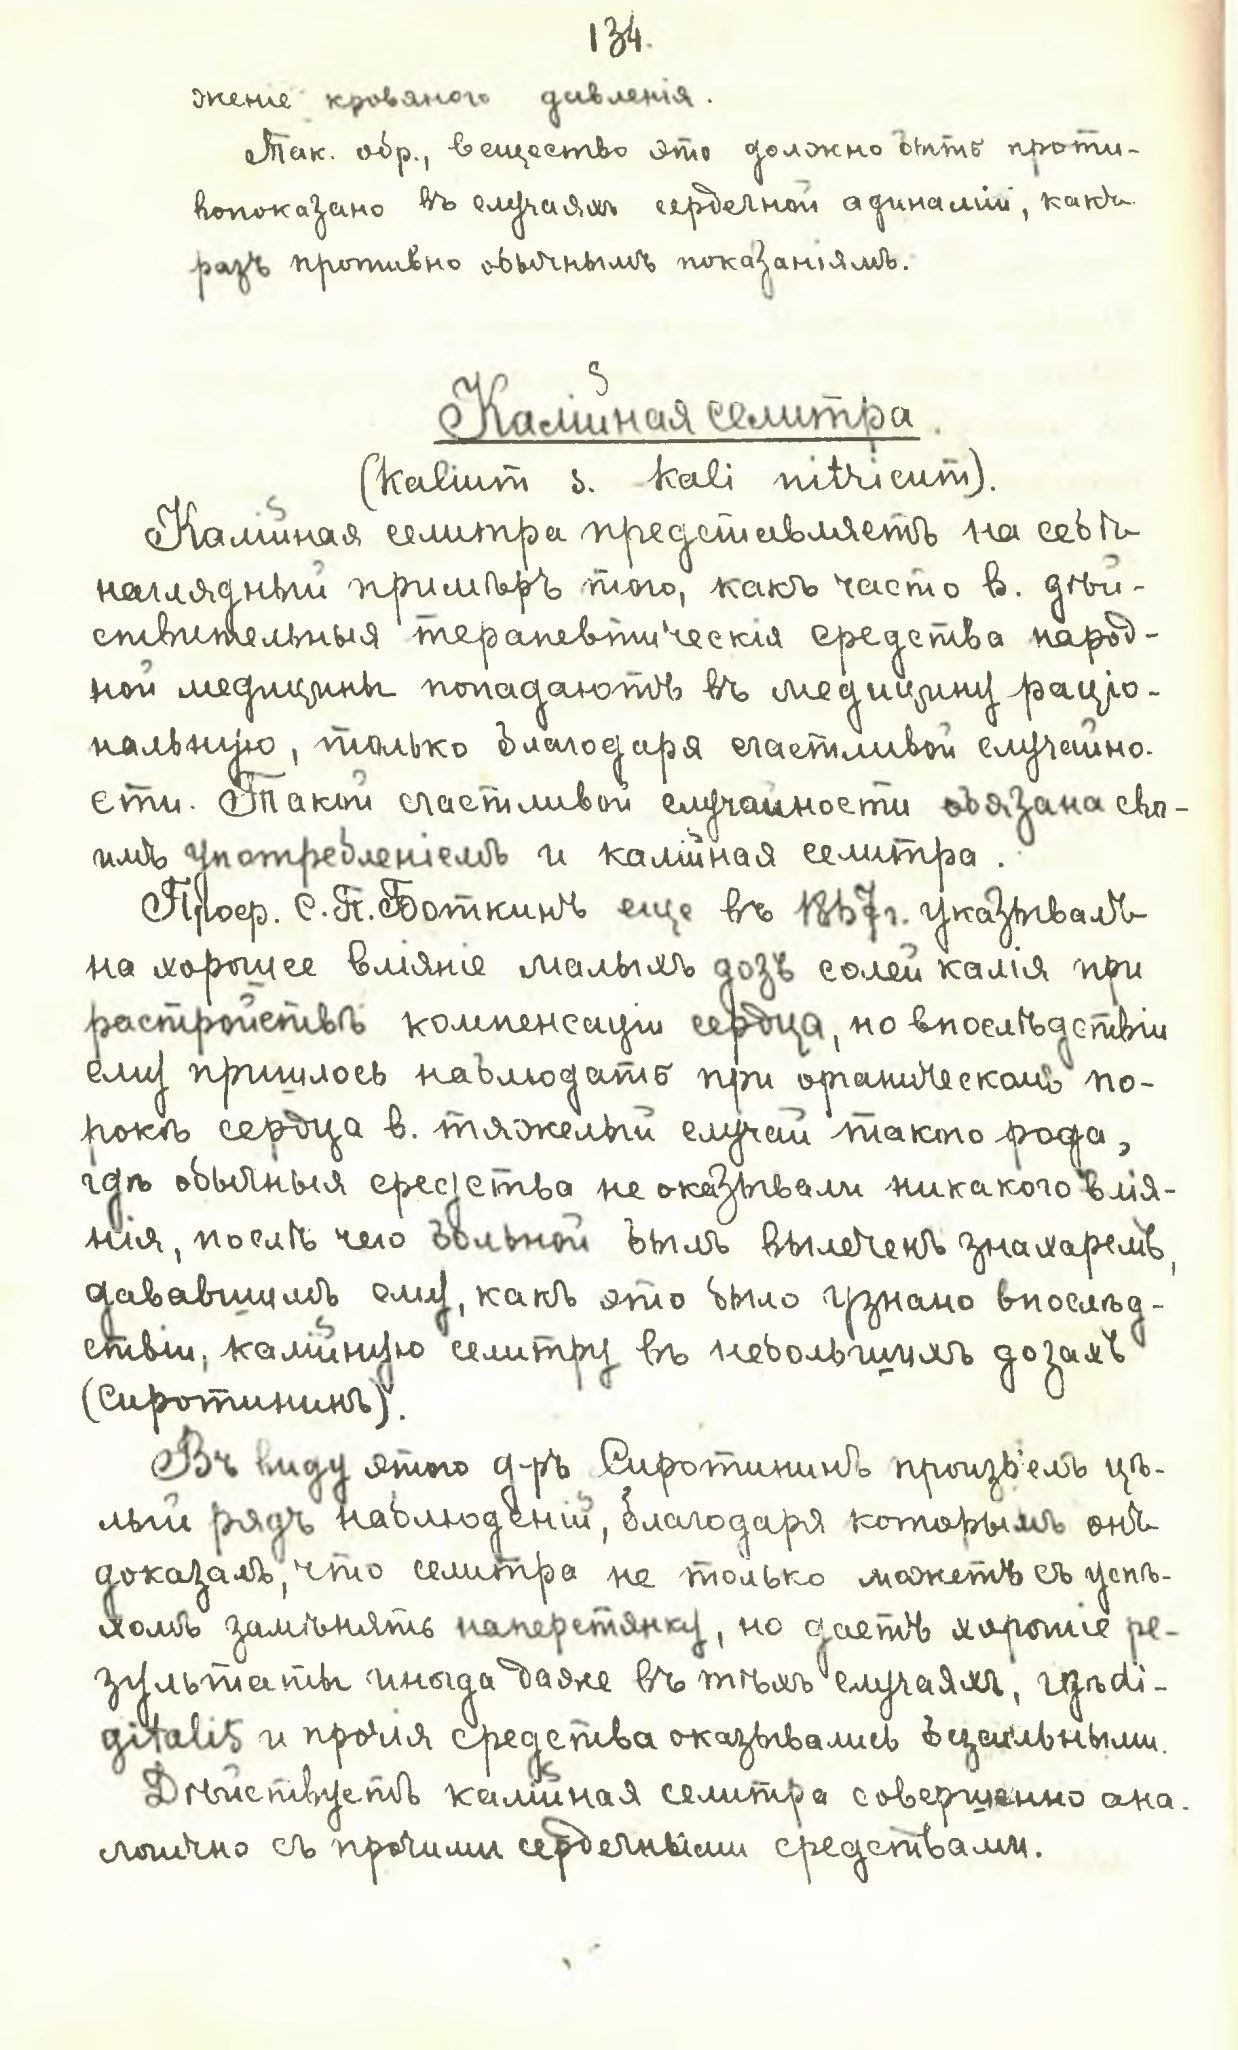 134.
жение кровяного давленія.
Так. обр., вещество это должно быть проти-
вопоказано въ случаяхъ сердечной адинаміи, какъ
разъ противно обычнымъ показаніямъ.
Калійная селитра.
(Kalium s. Kali nitricum).
Калійная селитра представляетъ на себѣ
наглядный примѣръ того, какъ часто в. дѣй-
ствительныя терапевтическія средства народ-
ной медицины попадаютъ въ медицину раціо-
нальную, только благодаря счастливой случайно-
сти. Такой счастливой случайности обязана сво-
имъ употребленіемъ и калійная селитра.
Проф. С. П. Боткинъ еще въ указывалъ
на хорошее вліяніе малыхъ дозъ солей калія при
растройствѣ компенсаціи сердца, но впослѣдствіи
ему пришлось наблюдать при органическомъ по-
рокѣ сердца в. тяжелый случай такого рода,
гдѣ обычныя средства не оказывали никакого влія-
нія, послѣ чего больной былъ вылеченъ знахаремъ,
дававшимъ ему, какъ это было узнано впослѣд-
ствіи, калійную селитру въ небольшихъ дозахъ
(Сиротининъ).
Въ виду этого д-ръ Сиротининъ произвелъ цѣ-
лый рядъ наблюденій, благодаря которымъ онъ
доказалъ, что селитра не только можетъ съ успѣ-
хомъ замѣнять наперстянку, но даетъ хорошіе ре-
зультаты иногда даже въ тѣхъ случаяхъ, гдѣ di-
gitalis и прочія средства оказывались безсильными.
Дѣйствуетъ калійная селитра совершенно ана-
логично съ прочими сердечными средствами.